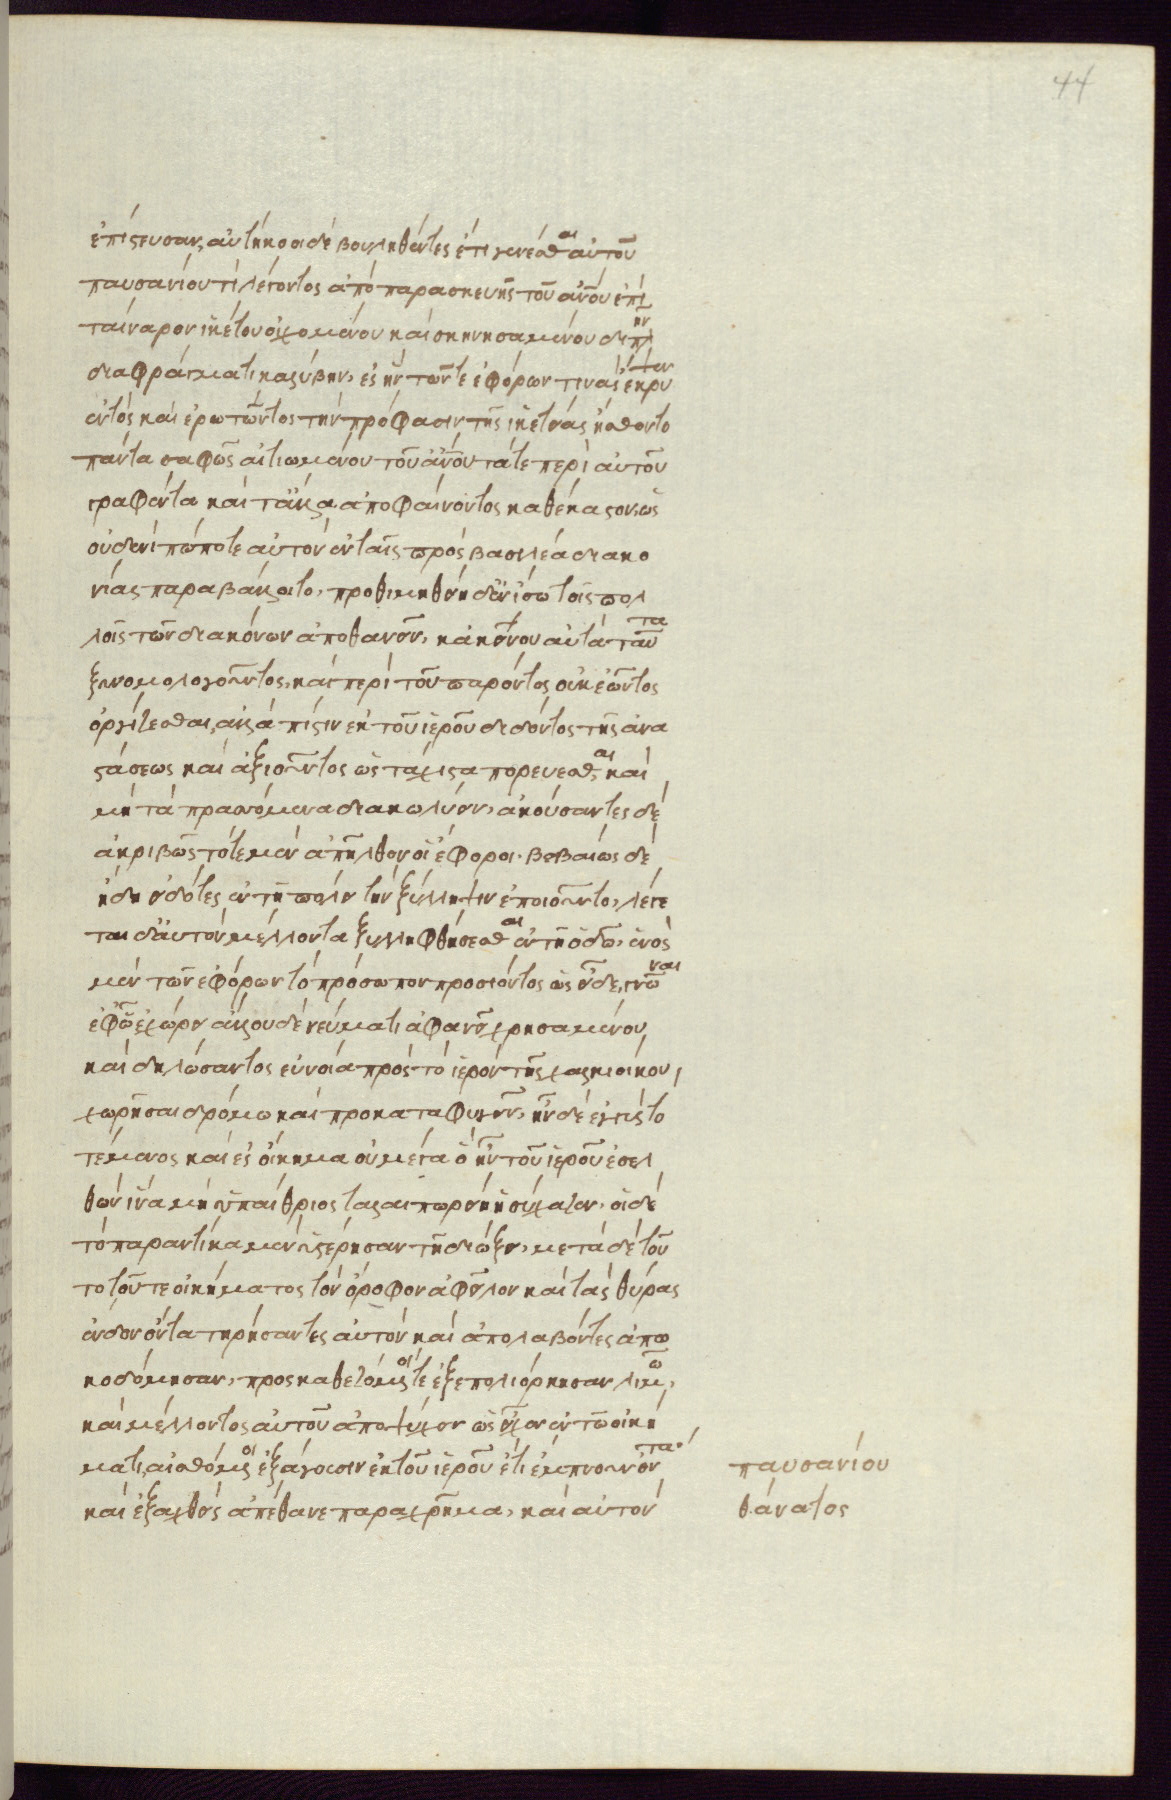 44
ἐπίστευσαν, αὐτήκοοι δὲ βουληθέντες ἔτι γενέσθαι αὐτοῦ
παυσανίου τί λέγοντος ἀπὸ παρασκευῆς τοῦ ἀνοῦ ἐπὶ
ταίναρον ἱκέτου οἰχομένου καὶ σκηνησαμένου διπλῆν
διαφράγματι καλύβην, ἐς ἣν τῶν τε ἐφόρων τινὰς ἔκρυψεν
ἐντὸς καὶ ἐρωτῶντος τὴν πρόφασιν τῆς ἱκετείας ἤσθοντο
πάντα σαφῶς αἰτιωμένου τοῦ ἀνοῦ τά τε περὶ αὐτοῦ
γραφέντα καὶ τἆλλα ἀποφαίνοντος καθέκαστον, ὡς
οὐδενὶ πώποτε αὐτὸν ἐν ταῖς πρὸς βασιλέα διακο
νίαις παραβάλοιτο, προτιμηθείη δ' ἐν ἴσῳ τοῖς πολ
λοῖς τῶν διακόνων ἀποθανεῖν, κἀκείνου αὐτὰ ταῦτα
ξυνομολογοῦντος, καὶ περὶ τοῦ παρόντος οὐκ ἐῶντος
ὀργίζεσθαι, ἀλλὰ πίστιν ἐκ τοῦ ἱεροῦ διδόντος τῆς ἀνα
στάσεως καὶ ἀξιοῦντος ὡς τάχιστα πορεύεσθαι, καὶ
μὴ τὰ πρασσόμενα διακωλύειν, ἀκούσαντες δὲ
ἀκριβῶς τότε μὲν ἀπῆλθον οἱ ἔφοροι. βεβαίως δὲ
ἤδη εἰδότες ἐν τῇ πόλει τὴν ξύλληψιν ἐποιοῦντο, λέγε
ται δ' αὐτὸν μέλλοντα ξυλληφθήσεσθαι ἐν τῇ ὁδῷ, ἑνὸς
μὲν τῶν ἐφόρων τὸ πρόσωπον προσιόντος ὡς εἶδε, γνῶναι
ἐφ' ᾧ ἐχώρει ἄλλου δὲ νεύματι ἀφανεῖ χρησαμένου
καὶ δηλώσαντος εὐνοίᾳ πρὸς τὸ ἱερὸν τῆς χαλκιοίκου
χωρῆσαι δρόμῳ καὶ προκαταφυγεῖν, ἦν δὲ ἐγγὺς τὸ
τέμενος καὶ ἐς οἴκημα οὐ μέγα ὃ ἦν τοῦ ἱεροῦ ἐσελ
θὼν ἵνα μὴ ὑπαίθριος ταλαιπωροίη ἡσύχαζεν. οἱ δὲ
τὸ παραυτίκα μὲν ὑστέρησαν τῇ διώξει, μετὰ δὲ τοῦ
το τοῦ τε οἰκήματος τὸν ὄροφον ἀφεῖλον καὶ τὰς θύρας
ἔνδον ὄντα τηρήσαντες αὐτὸν καὶ ἀπολαβόντες ἀπῳ
κοδόμησαν, προσκαθεζόμενοί τε ἐξεπολιόρκησαν λιμῷ,
καὶ μέλλοντος αὐτοῦ ἀποψύχειν ὡς εἶχεν ἐν τῷ οἰκή
ματι, αἰσθόμενοι ἐξάγουσιν ἐκ τοῦ ἱεροῦ ἔτι ἔμπνουν ὄντα·
καὶ ἐξαχθεὶς ἀπέθανε παραχρῆμα, καὶ αὐτὸν
παυσανίου
θάνατος